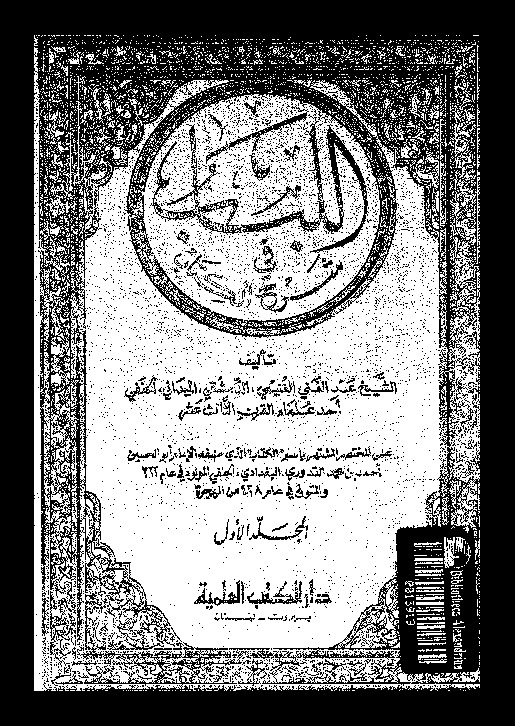 اللباب
في
شرح الكتاب
تأليف
الشيخ عبد الغني الغنيمي، الدمشقي، الميداني، الحنفي
أحد علماء القرن الثالث عشر
على المختصر المشتهر باسم الكتاب الذي صنفه الإمام أبو الحسين
أحمد بن محمد القدوري، البغدادي، الحنفي المولود في عام ٣٣٢
والمتوفى في عام ٤٢٨ من الهجرة
المجلد الأول
دار الكتب العلمية
بيروت - لبنان
Bibliotheca Alexandrina